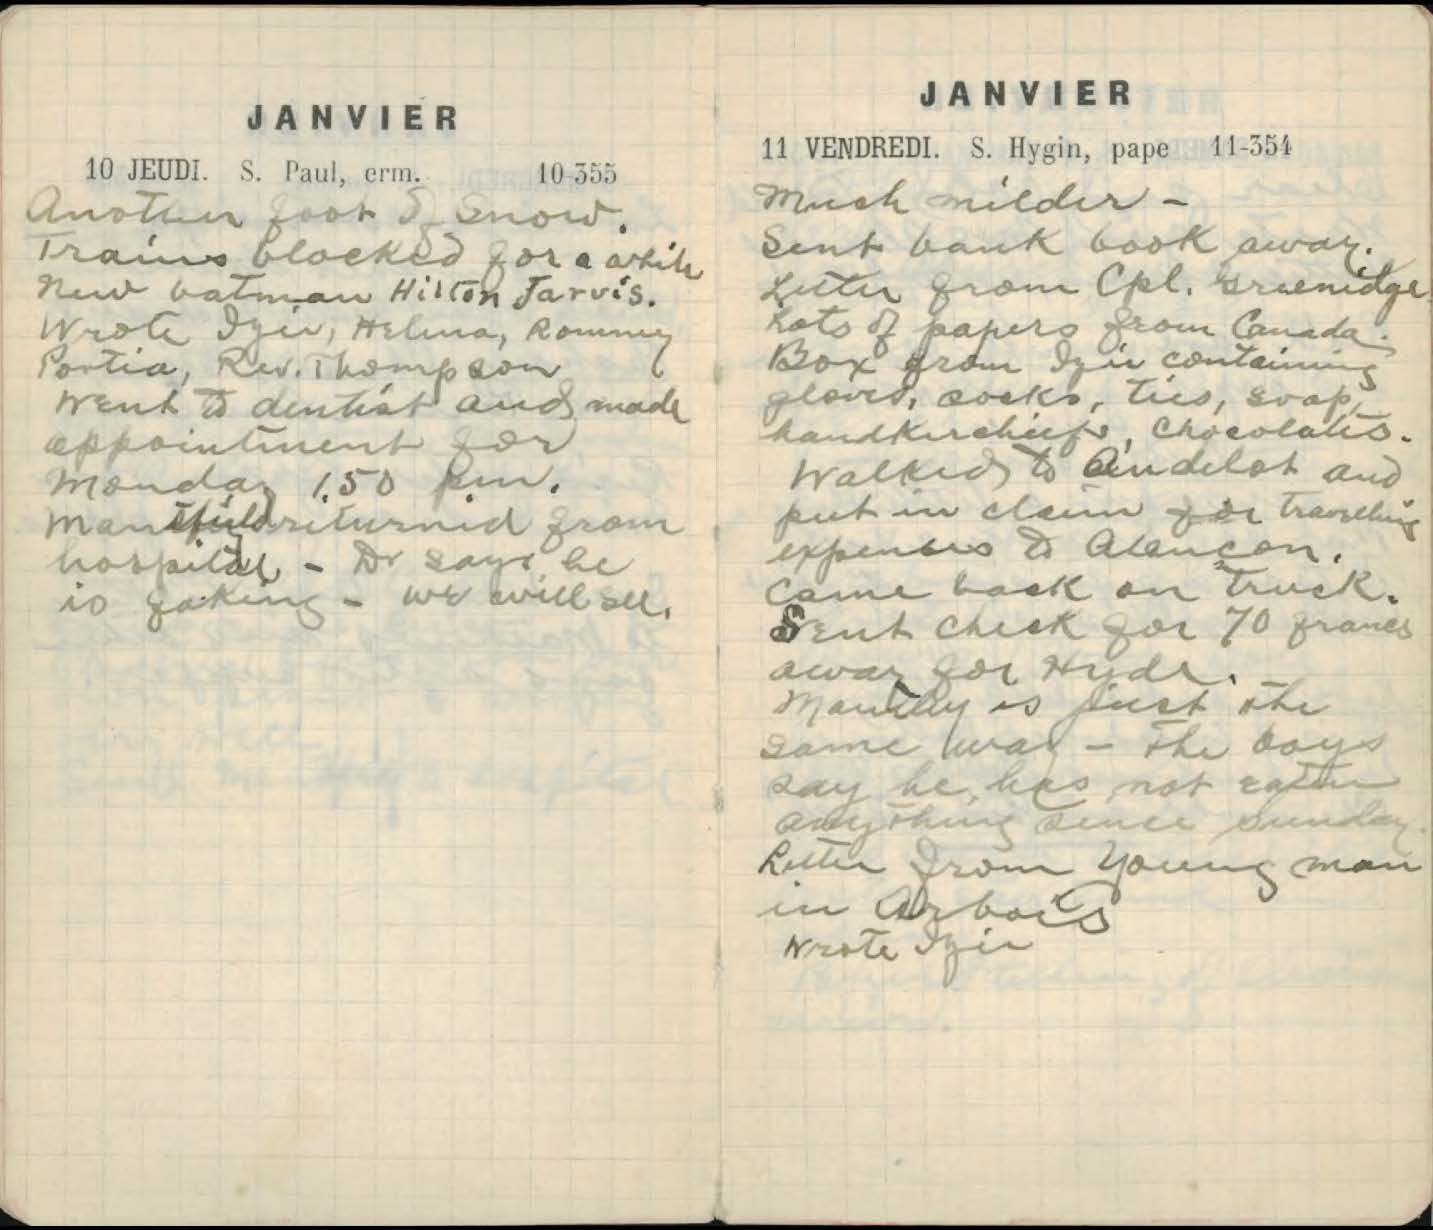 JANVIER
10 JEUDI. S. Paul, erm. 10-355
Another foot of snow.
Trains blocked for a while
New batman Hilton Jarvis.
Wrote Izie, Helena, Rommey
Portia, Rev. Thompson
Went to dentist and made
appointment for
Monday 1.50 p.m.
returned from
hospital - Dr says he
is faking - we will see.
JANVIER
11 VENDREDI. S. Hygin, pape 11-354
Much milder -
Sent bank book away.
Letter from Cpl. Greenidge.
Lots of papers from Canada.
Box from Izie containing
gloves, socks, ties, soap,
handkerchiefs, Chocolates.
Walked to Andelot and
put in claim for travelling
expenses to Alençon.
Came back on truck.
Sent check for 70 francs
away for Hyde.
is just the
same way - The boys
say he has not eaten
anything since Sunday.
Letter from Young man
in Arbois
Wrote Izie